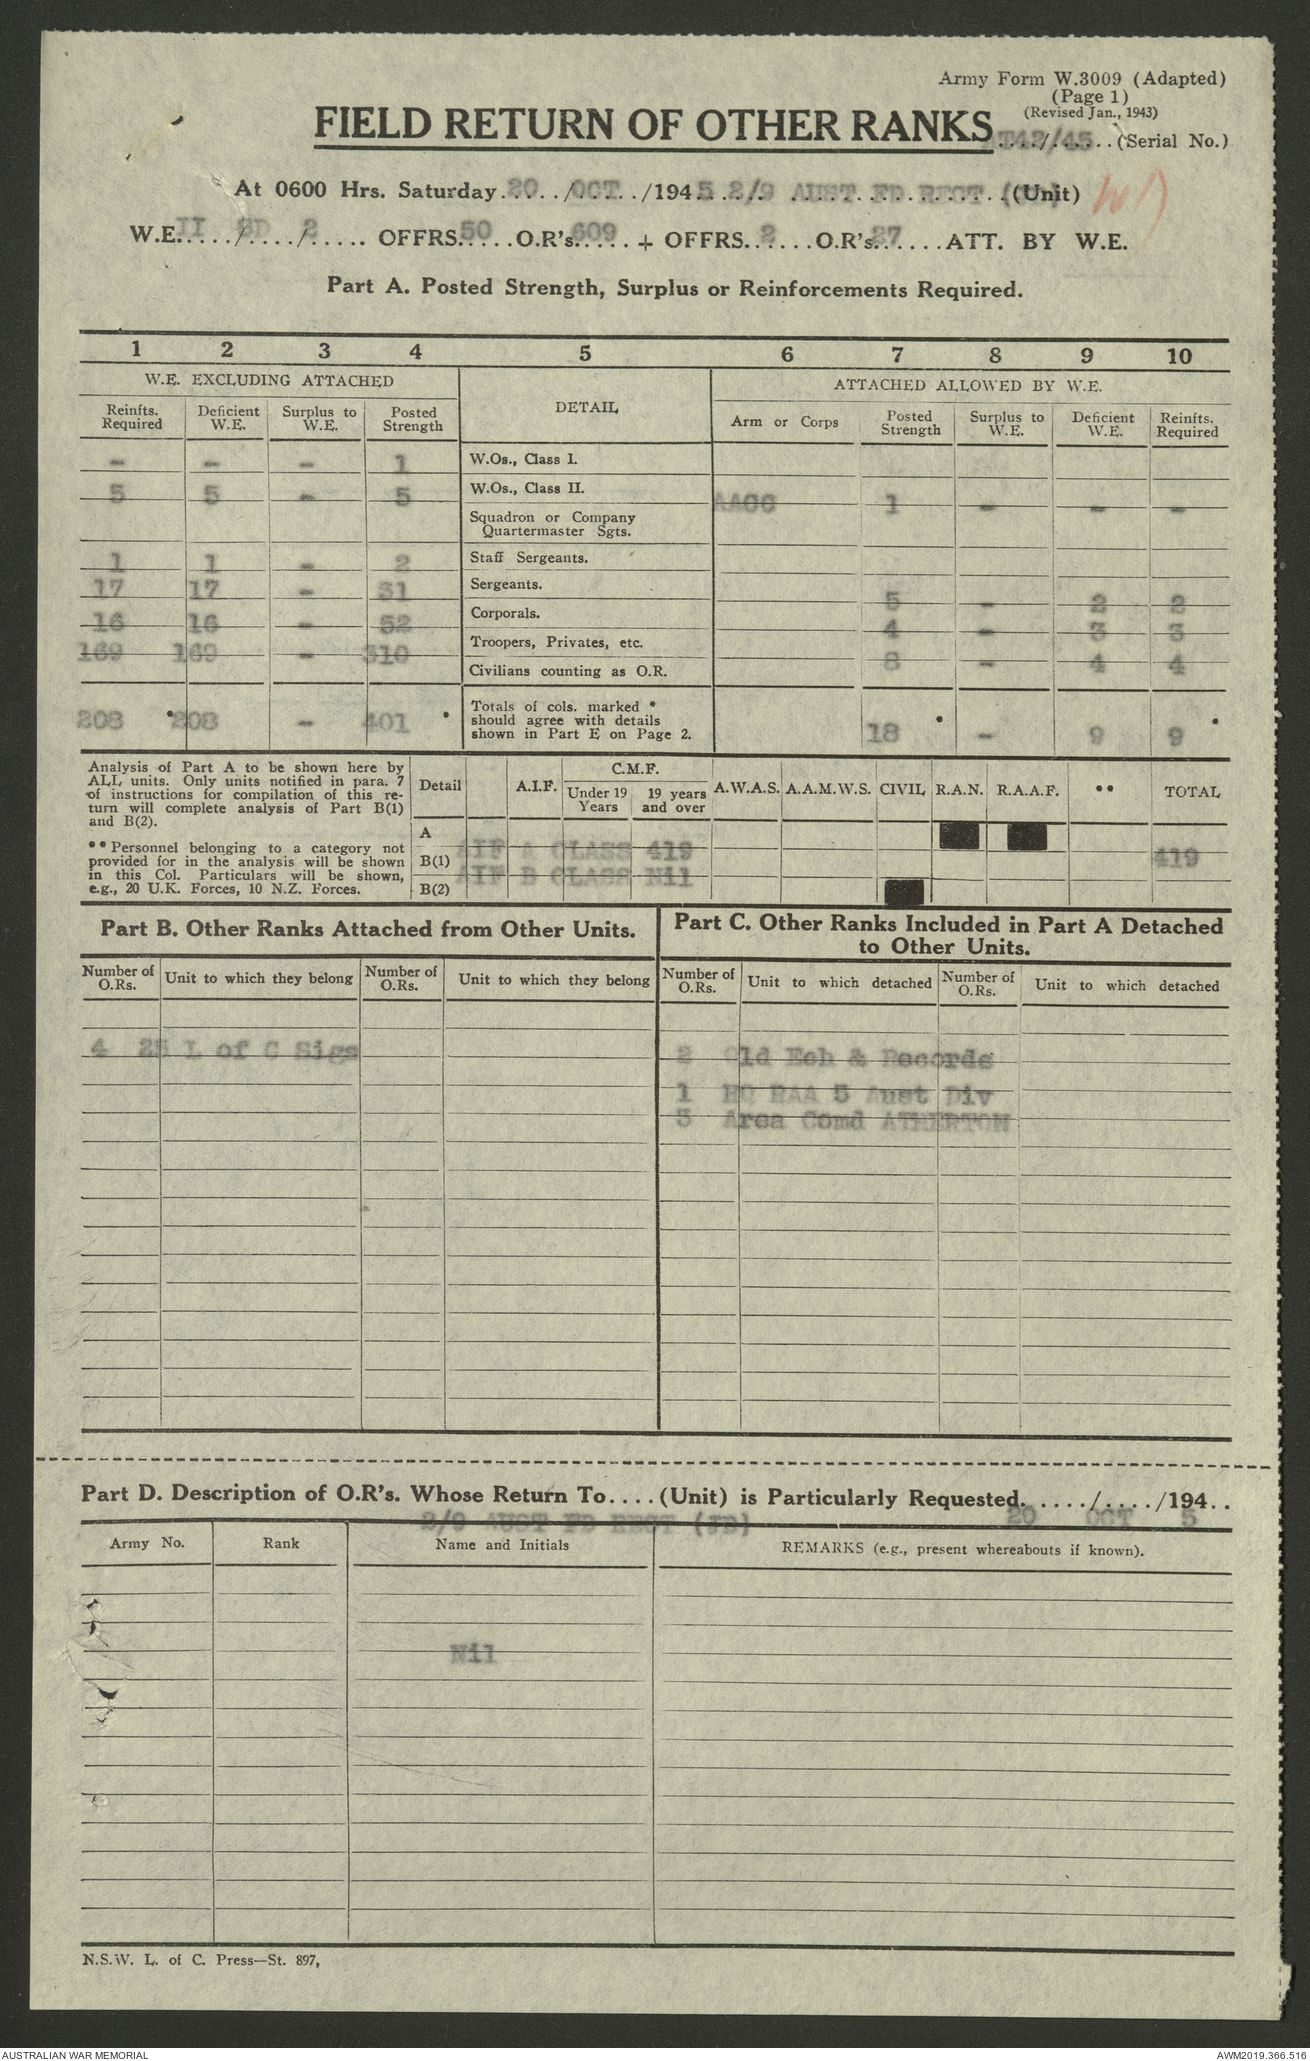 Army Form W.3009 (Adapted)
(Page 1)
(Revised Jan., 1943)
FIELD RETURN OF OTHER RANKS 42/45 (Serial No.)
At 0600 Hrs. Saturday 20 / OCT /1945 2/9 AUST FD REGT (Unit)
W.E. II / SD / 2 OFFRS. 50 O.R's. 609 + OFFRS. 2 O.R's. 27 ATT. BY W.E.
Part A. Posted Strength, Surplus or Reinforcements Required.
1 2 3 4 5 6 7 8 9 10
W.E. EXCLUDING ATTACHED DETAIL ATTACHED ALLOWED BY W.E.
Reinfts. Required Deficient W.E. Surplus to W.E. Posted Strength Arm or Corps Posted Strength Surplus to W.E. Deficient W.E. Reinfts. Required
- - - 1 W.Os., Class I.
5 5 - 5 W.Os., Class II. AAOC 1 - - -
Squadron or Company
Quartermaster Sgts.
1 1 - 2 Staff Sergeants.
17 17 - 31 Sergeants. 5 - 2 2
16 16 - 52 Corporals. 4 - 3 3
169 169 - 310 Troopers, Privates, etc. 8 - 4 4
Civilians counting as O.R.
208 * 208 - 401 * Totals of cols. marked *
should agree with details
shown in Part E on Page 2. 18 * - 9 9 *
Analysis of Part A to be shown here by
ALL units. Only units notified in para. 7
of instructions for compilation of this re-
turn will complete analysis of Part B(1)
and B(2).
**Personnel belonging to a category not
provided for in the analysis will be shown
in this Col. Particulars will be shown,
e.g., 20 U.K. Forces, 10 N.Z. Forces.
Detail A.I.F. C.M.F. Under 19 Years 19 years and over A.W.A.S. A.A.M.W.S. CIVIL R.A.N. R.A.A.F. ** TOTAL
A
B(1) AIF A CLASS 419 419
B(2) AIF B CLASS Nil
Part B. Other Ranks Attached from Other Units.
Part C. Other Ranks Included in Part A Detached
to Other Units.
Number of O.Rs. Unit to which they belong Number of O.Rs. Unit to which they belong Number of O.Rs. Unit to which detached Number of O.Rs. Unit to which detached
4 25 L of C Sigs
2 Qld Ech & Records
1 HQ RAA 5 Aust Div
3 Area Comd ATHERTON
Part D. Description of O.R's. Whose Return To....(Unit) is Particularly Requested. ..../..../194..
2/9 AUST FD REGT (JD) 20 OCT 5
Army No. Rank Name and Initials REMARKS (e.g., present whereabouts if known).
Nil
N.S.W. L. of C. Press—St. 897,
AUSTRALIAN WAR MEMORIAL
AWM2019.366.516